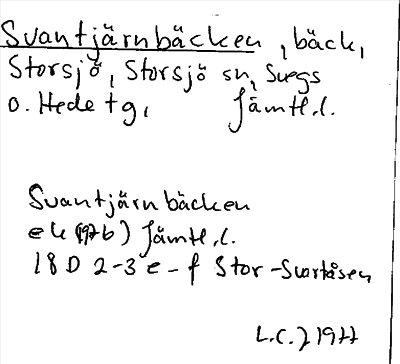 Svantjärnbäcken, bäck,
Storsjö, Storsjö sn, Svegs
o. Hede tg, Jämtl.l.
Svantjärnbäcken
ek (1976) Jämtl.l.
18 D 2-3 e-f Stor-Svartåsen
L.C.J 1977